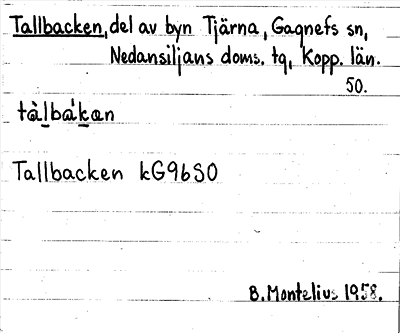 Tallbacken, del av byn Tjärna, Gagnefs sn,
Nedansiljans doms. tg, Kopp. län.
50.
tàlbákan
Tallbacken kG9bS0
B. Montelius 1958.